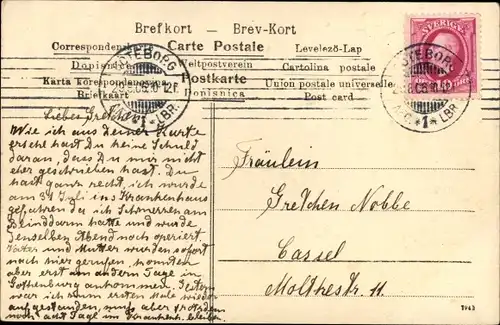 Brefkort — Brev-Kort
Correspondenskort Carte Postale Levelező-Lap
Dopisnice Weltpostverein Cartolina postale
Karta korespondencyjna Postkarte Union postale universelle
Briefkaart Dopisnica Post card
SVERIGE
GÖTEBORG
1 LBR.
GÖTEBORG
1 LBR.
Liebes Gretchen!
Wie ich aus deiner Karte
ersehe hast Du keine Schuld
daran, dass Du mir nicht
eher geschrieben hast. Du
hast ganz recht, ich wurde
am 24 Juli ins Krankenhaus
gefahren da ich Schmerzen am
Blinddarm hatte und wurde
denselben Abend noch operiert
Vater und Mutter wurden sofort
nach hier gerufen, konnten
aber erst am andern Tage in
Gothenburg ankommen. Gestern
war ich zum ersten Male wieder
aufgestanden, muss aber trotzdem
noch acht Tage im Krankenh. bleiben
Fräulein
Gretchen Nobbe
Cassel
Moltkestr. 11
1943